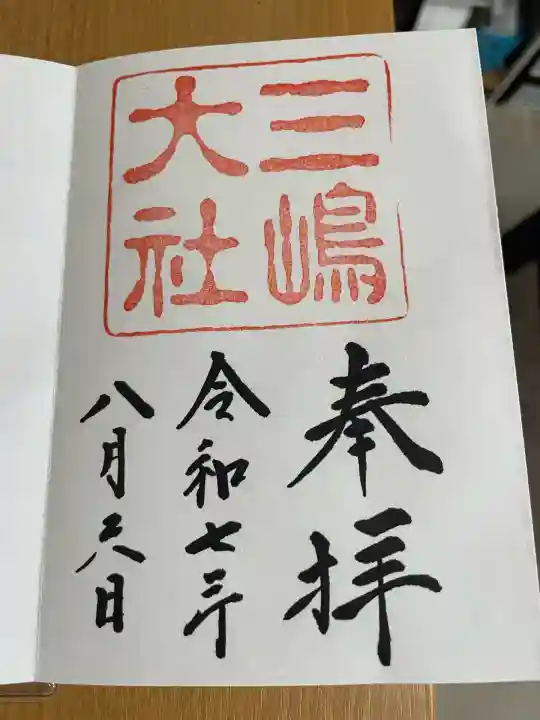 三嶋
大社
奉拝
令和七年
八月六日